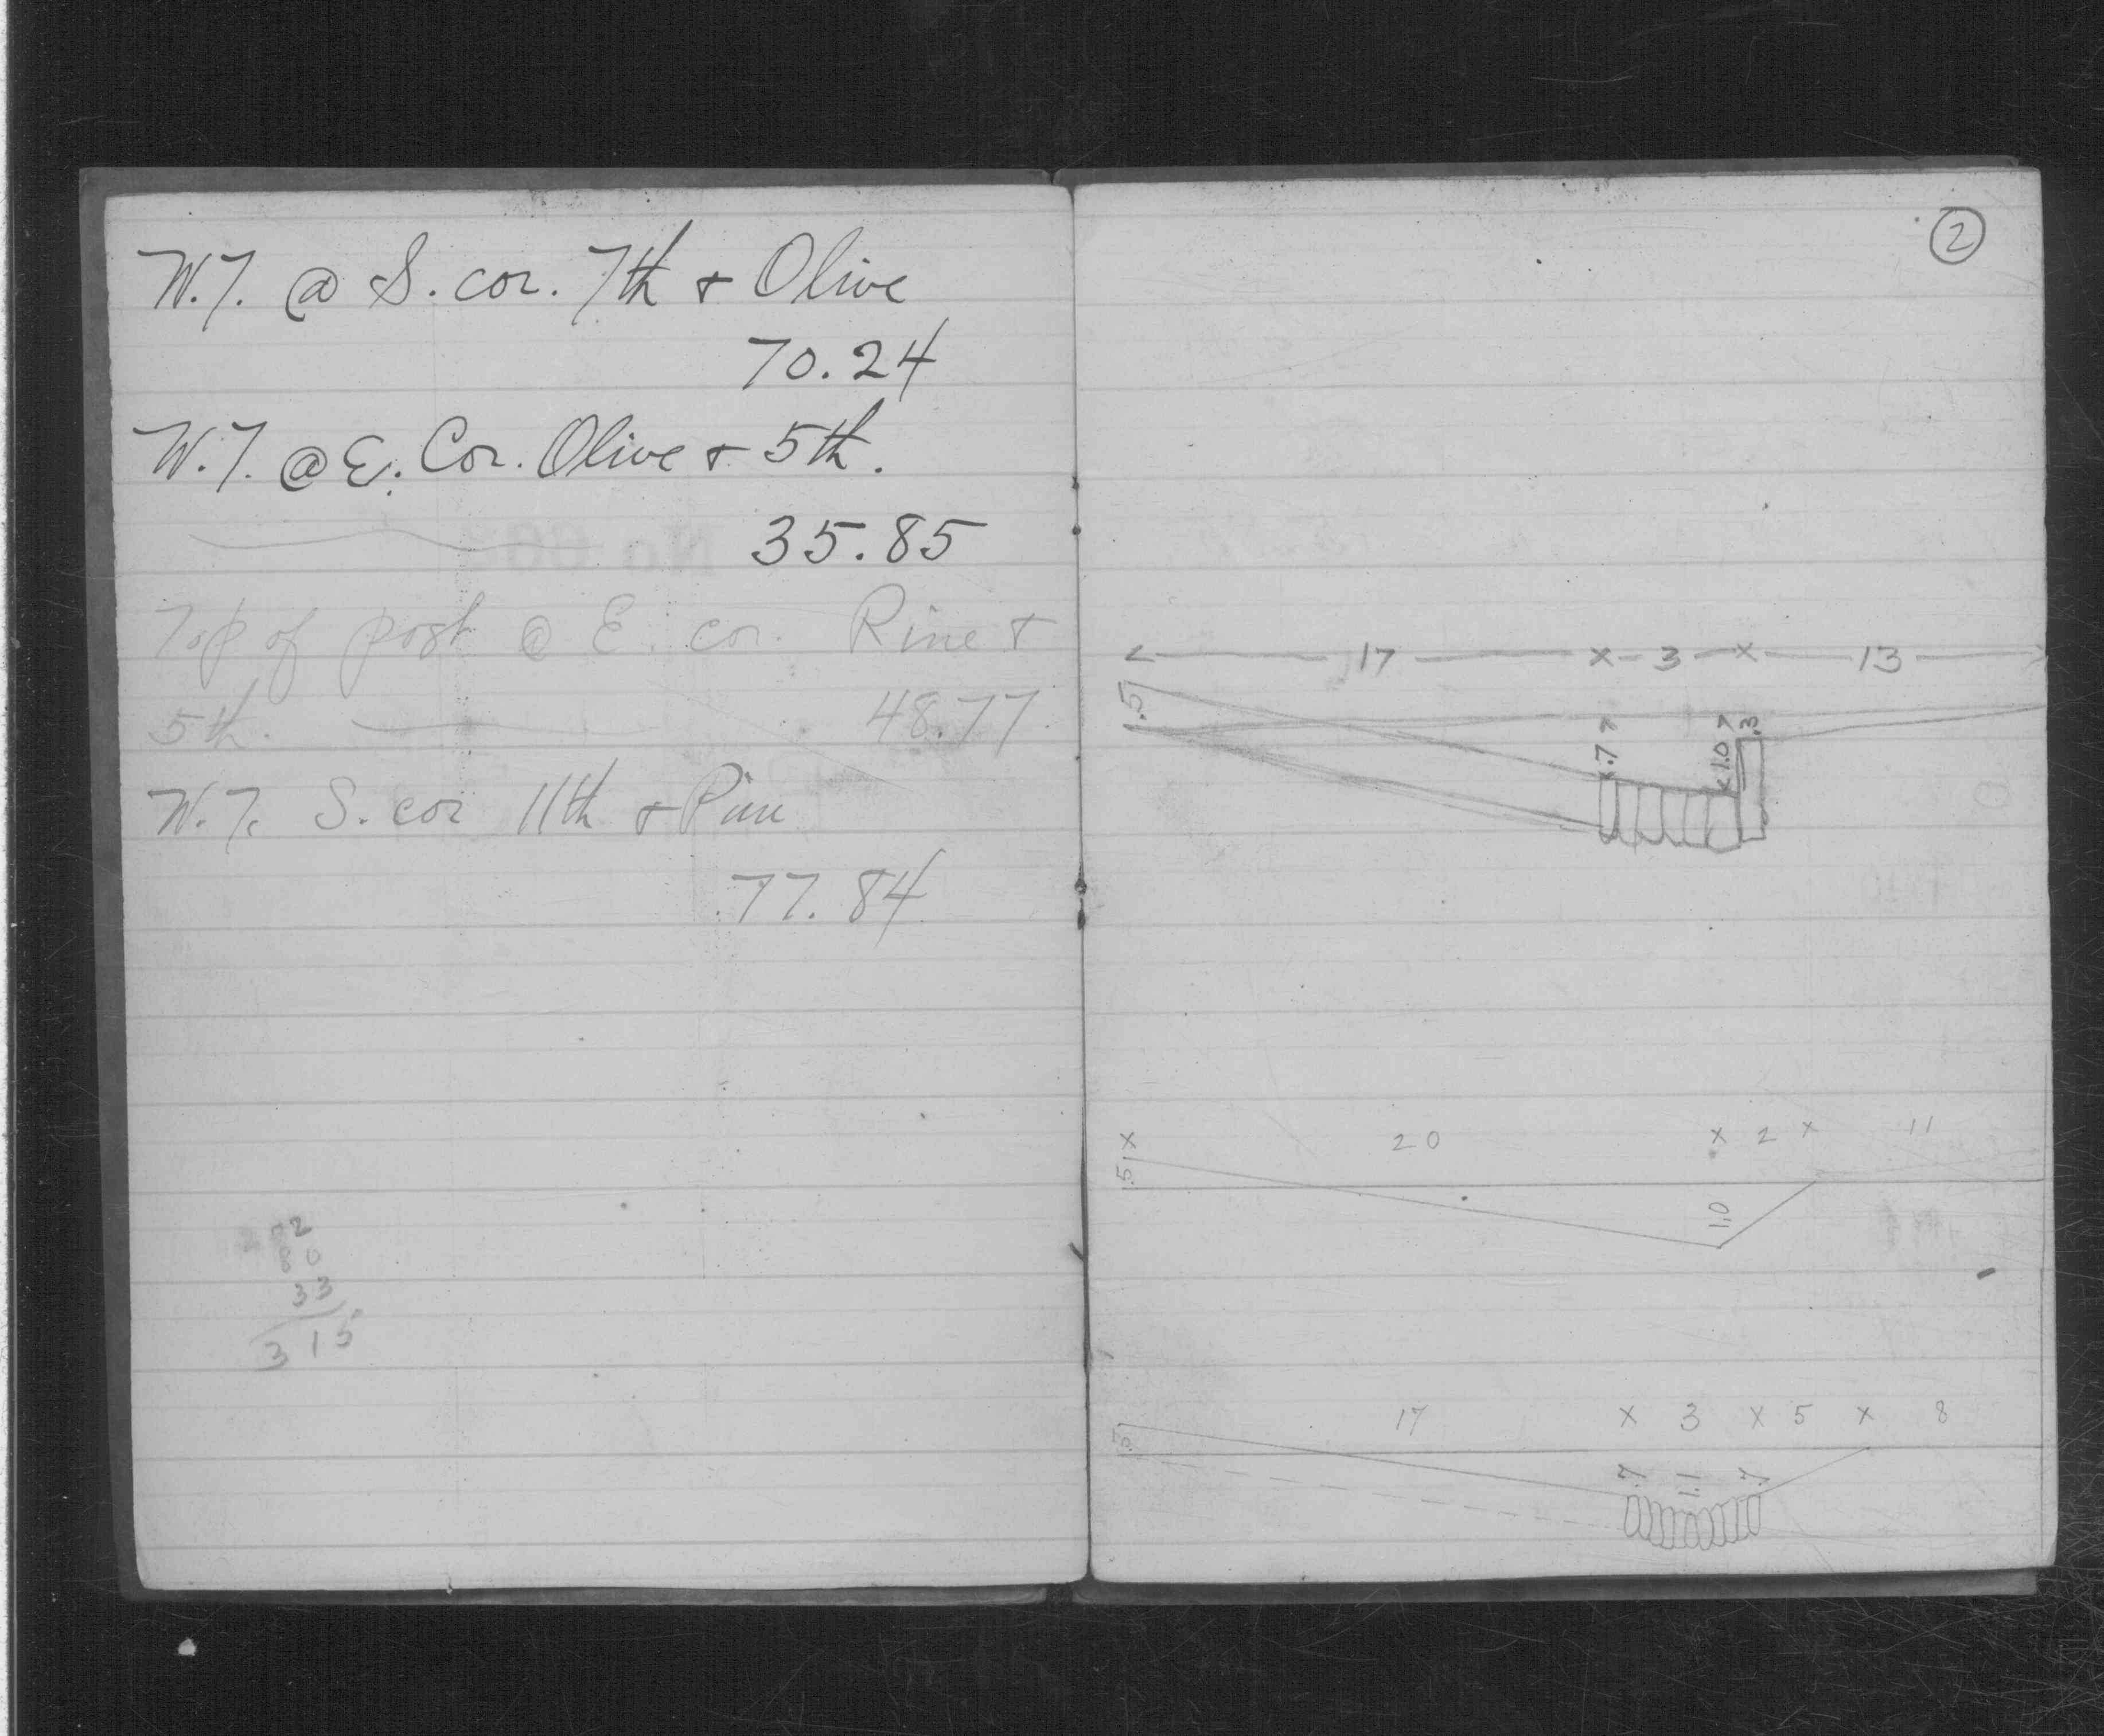 W.T. @ S. cor. 7th + Olive
70.24
W.T. @ E. Cor. Olive + 5th.
35.85
Top of post @ E. cor. Pine +
5th. 48.77
W.T. S. cor 11th + Pine
77.84
2
80
33
315
2
17 x 3 x 13
.5
.7 1.0 .3
x 20 x 2 x 11
.5
1.0
17 x 3 x 5 x 8
.5
.7 1.1 .7